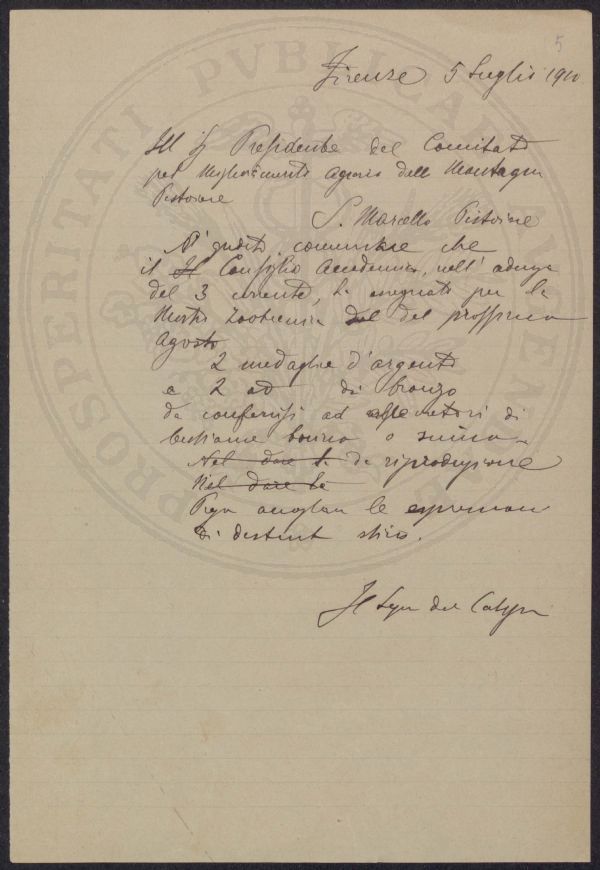 5
Firenze 5 Luglio 1910
Ill Sig Presidente del Comitato
pel Miglioramento Agrario della Montagna
Pistoiese
S. Marcello Pistoiese
M'è grato comunicare che
il Il Consiglio Accademico, nell' adunza
del 3 corrente, ha assegnato per la
Mostra Zootecnica del del prossimo
Agosto
2 medaglie d'argento
e 2 di bronzo
da conferirsi ad allevatori di
bestiame bovino o suino
Nel dare la da riproduzione
Nel dare la
Prego accogliere le espressioni
di distinta stima.
Il Segr del
PROSPERITATI PVBLICAE